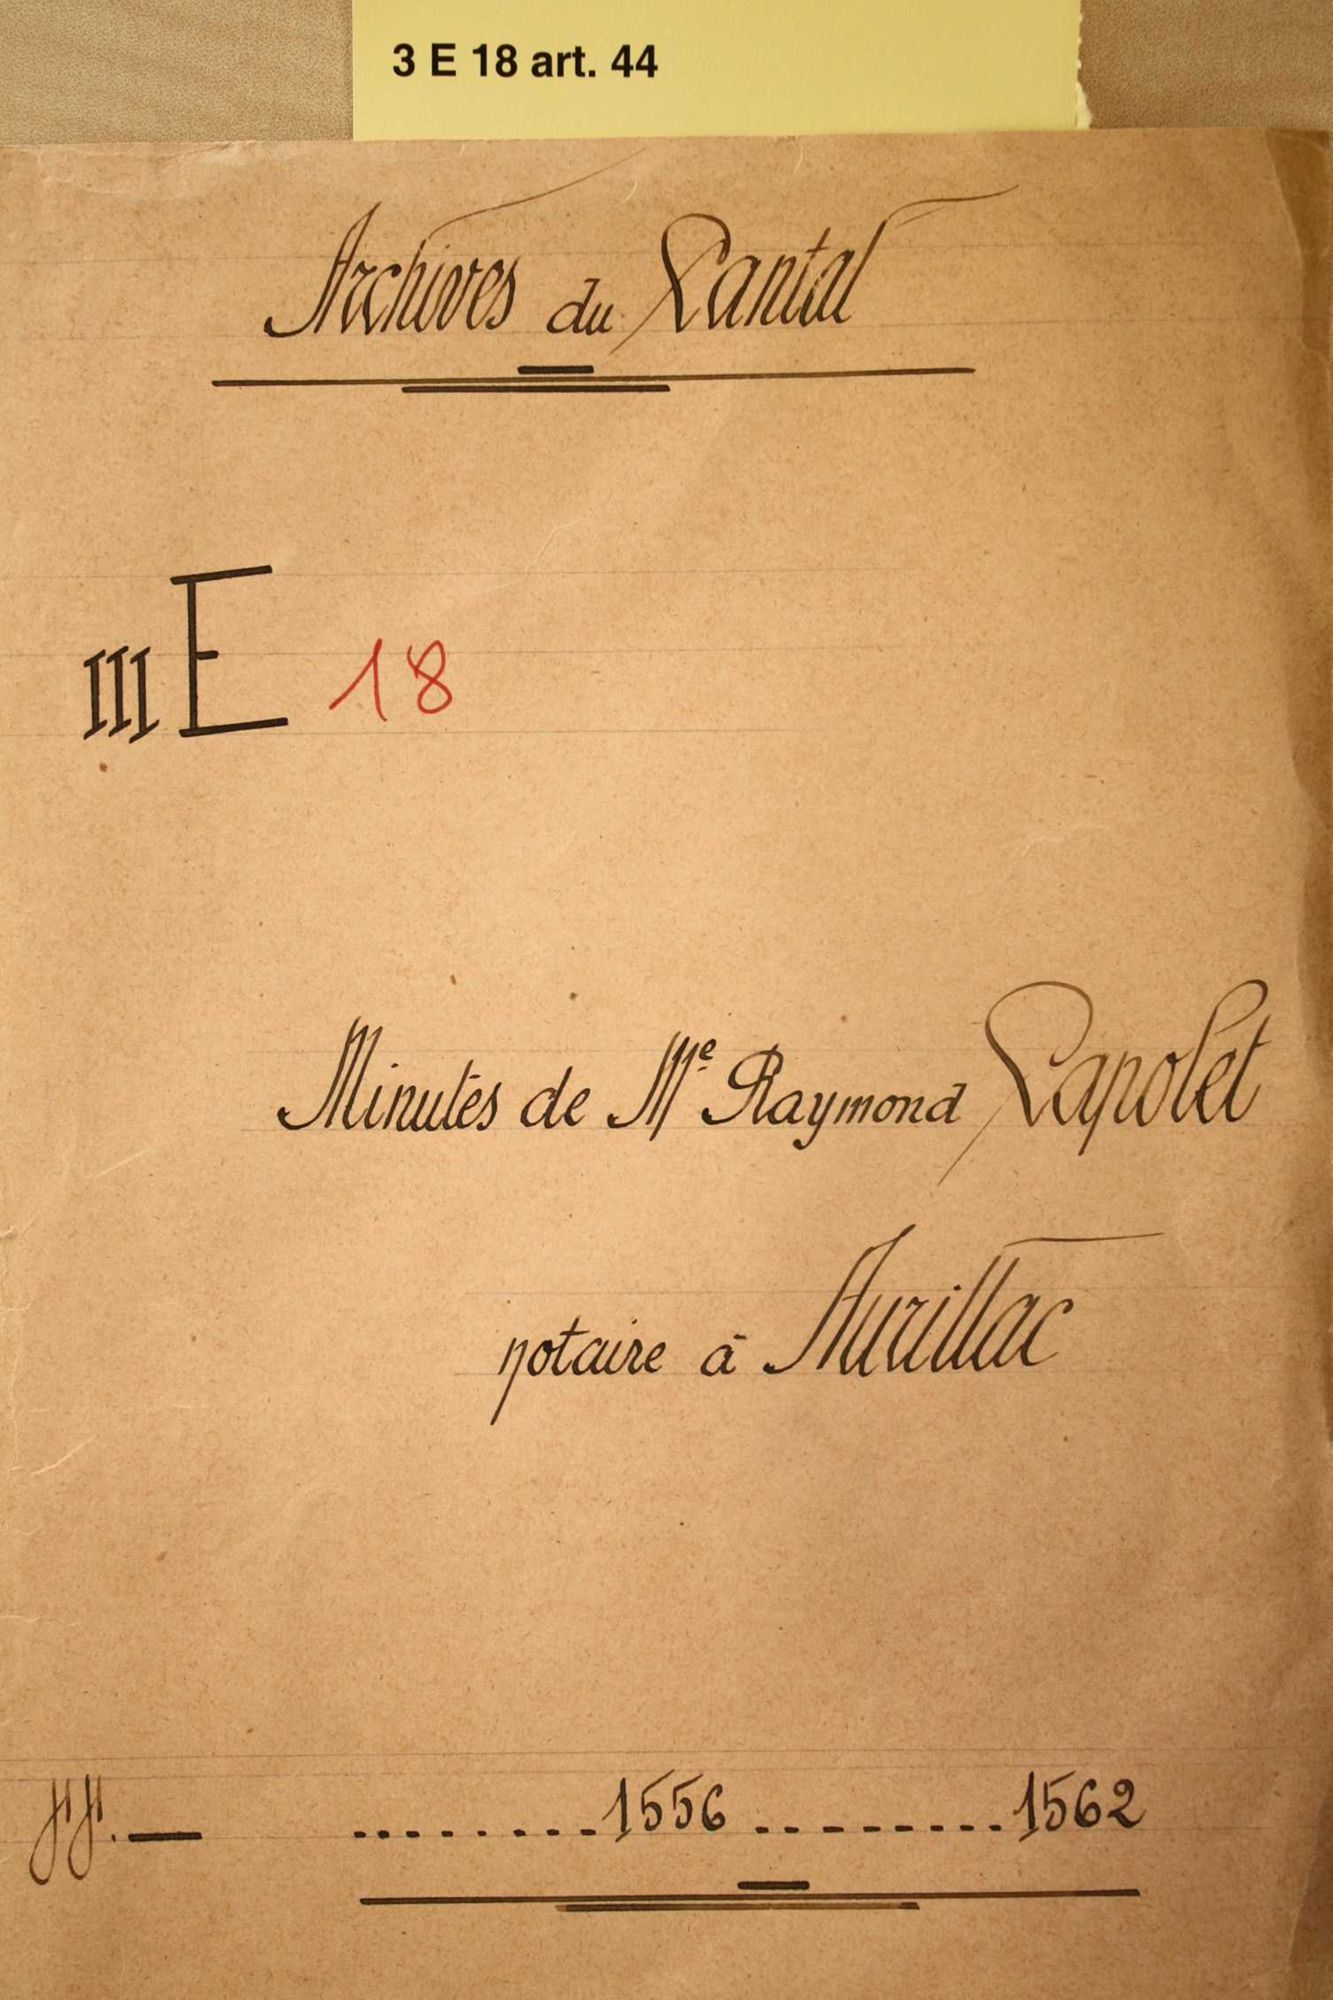 3 E 18 art. 44
Archives du Cantal
III E 18
Minutes de Me Raymond Capolet
notaire à Aurillac
........1556.........1562